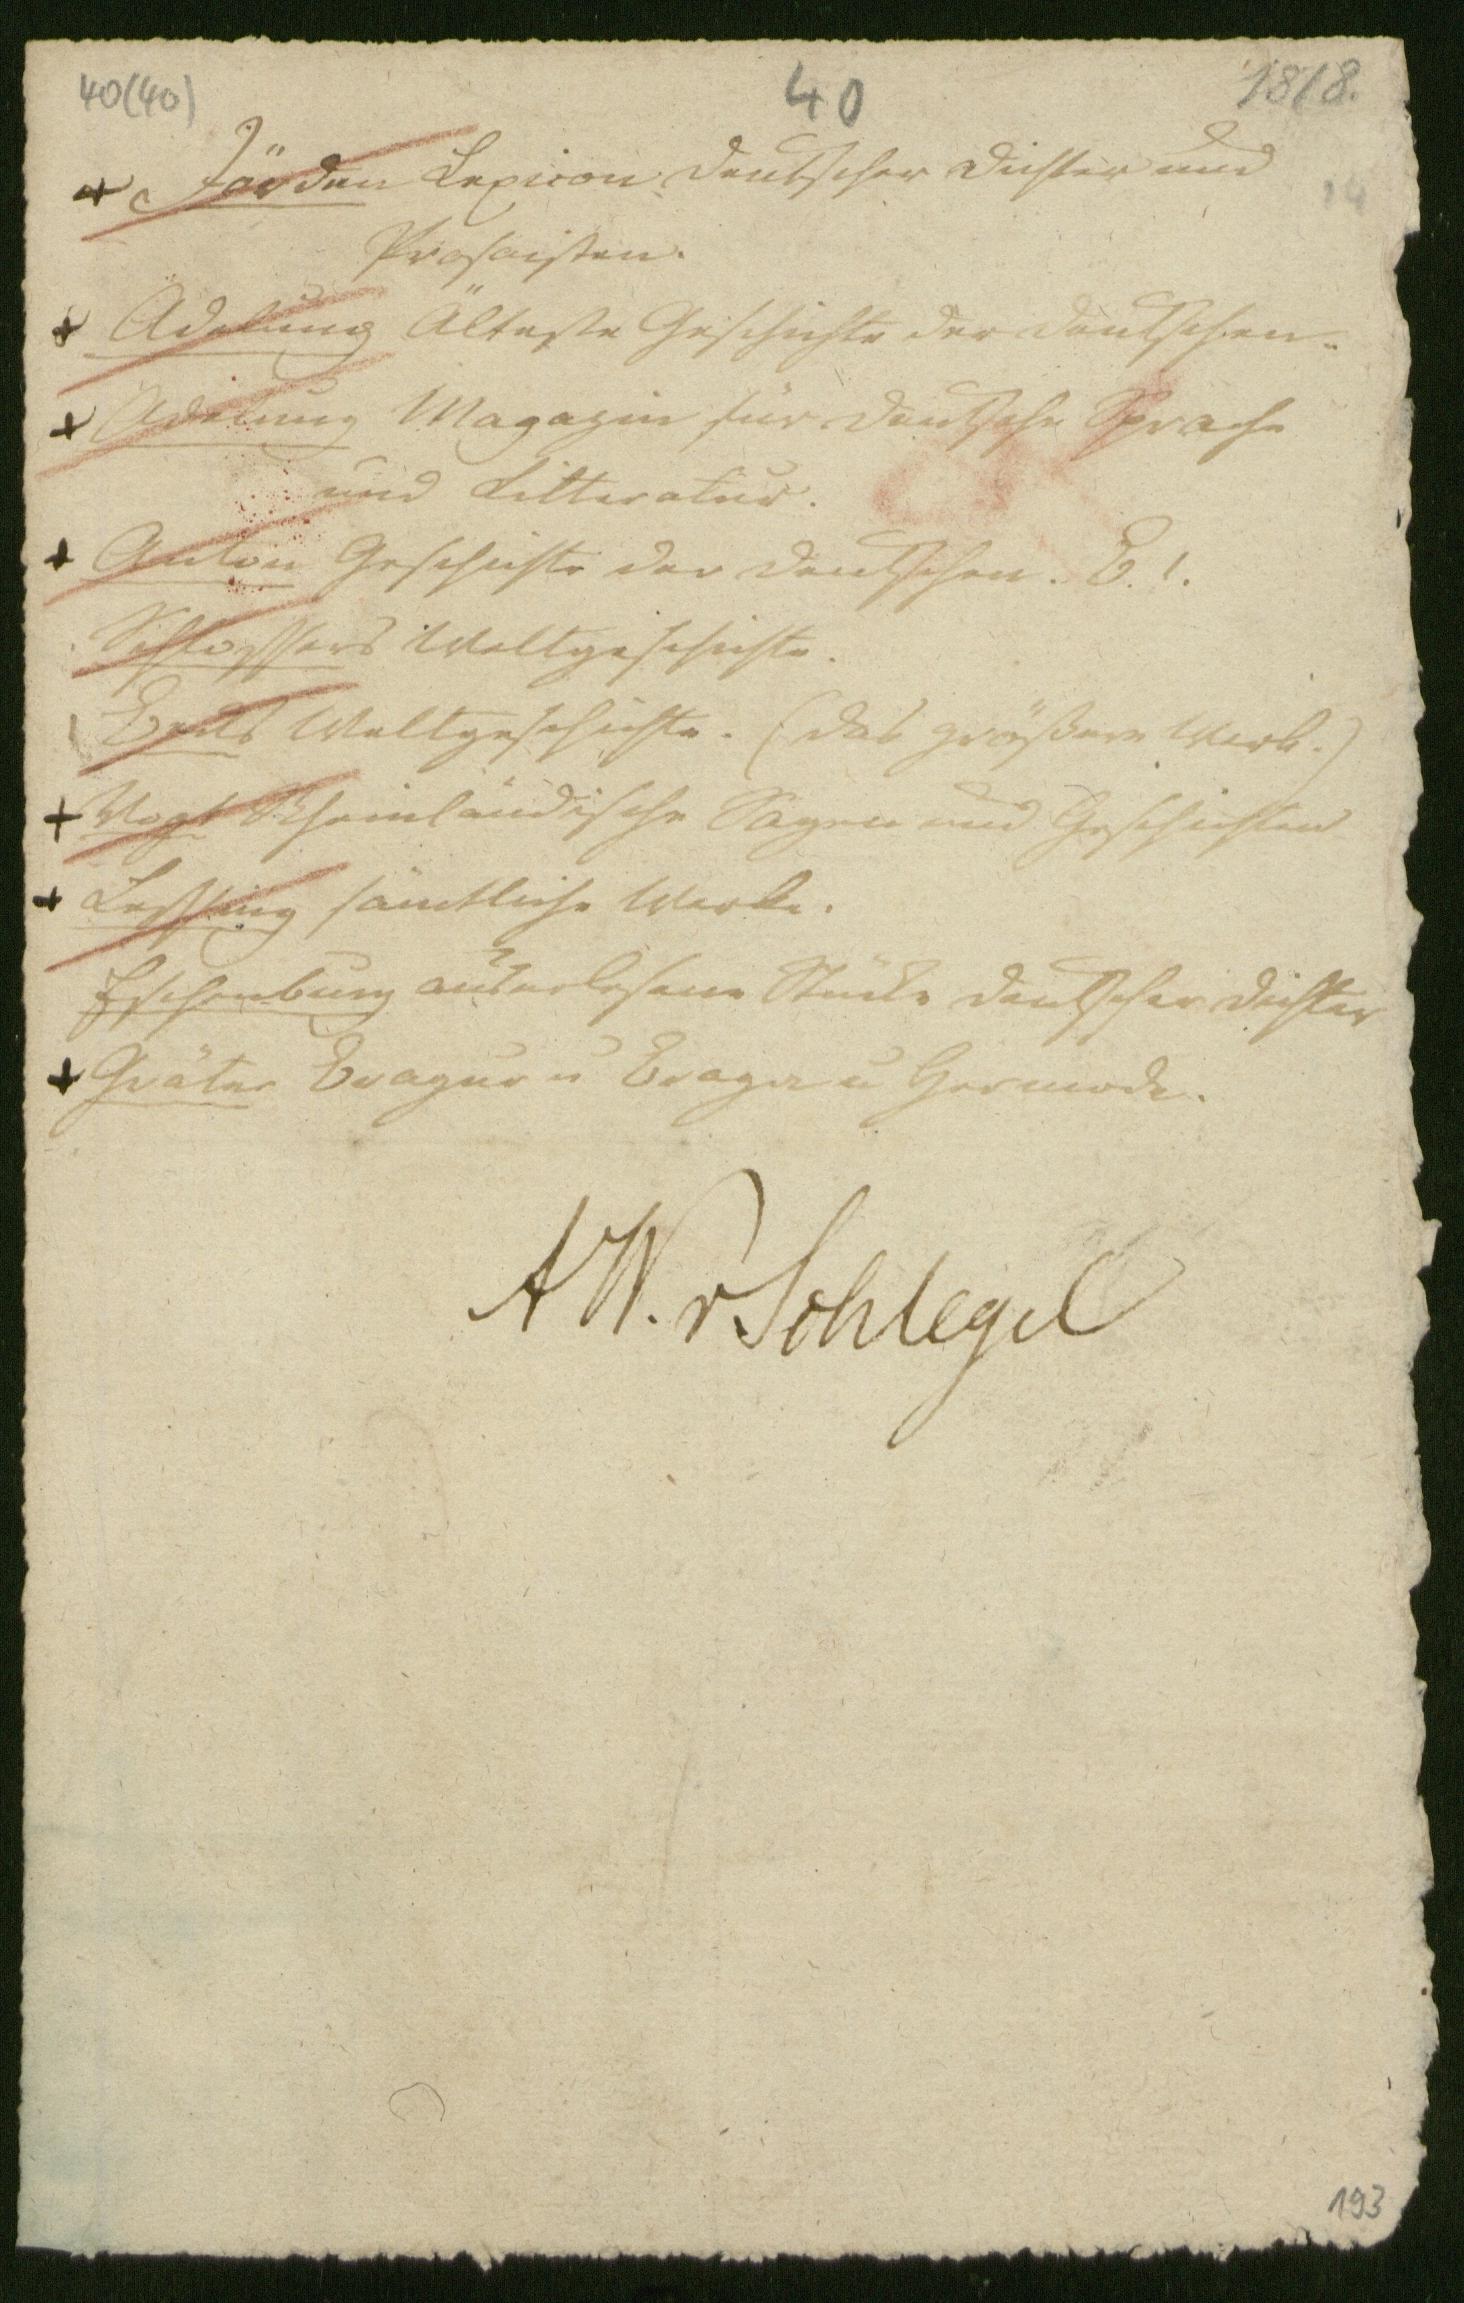 40(40)
40
1818.
14
+ Jörden Lexicon deutscher Dichter und
Prosaisten.
+ Adelung Älteste Geschichte der Deutschen.
+ Adelung Magazin für deutsche Sprache
und Litteratur.
+ Anton Geschichte der Deutschen. B. 1.
Schlossers Weltgeschichte.
Weltgeschichte. (das größere Werk.)
+ Vogt Rheinländische Sagen und Geschichten
+ Lessing sämtliche Werke.
Eschenburg auserlesene Stücke deutscher Dichter
+ Gräter Bragur u Braga u Hermode.
AW. v Schlegel
193